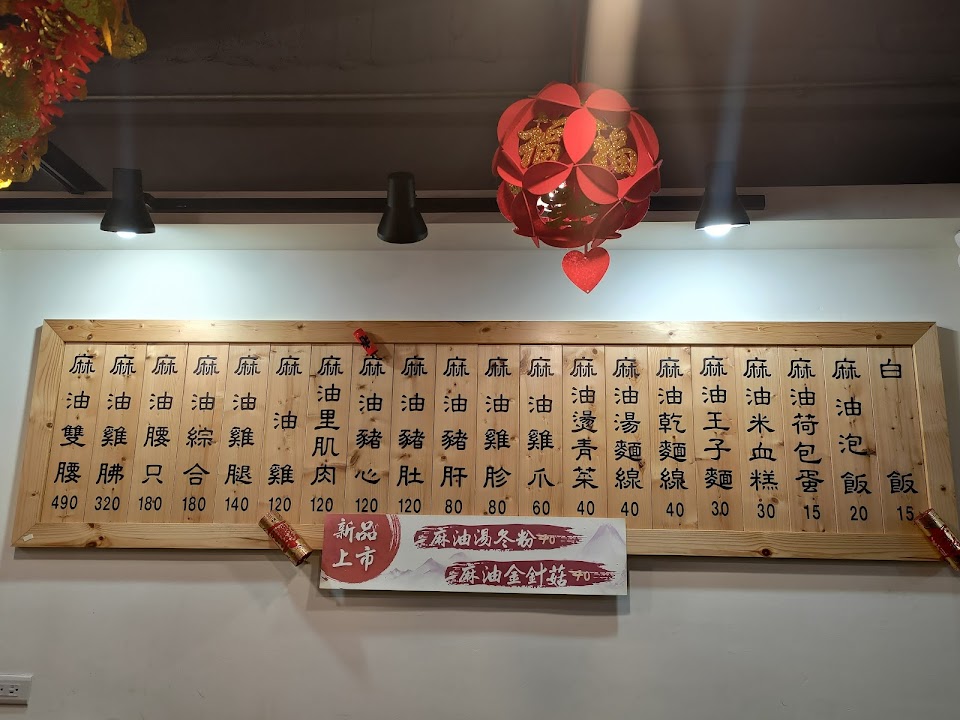 福 福
麻油雙腰 490
麻油雞胇 320
麻油腰只 180
麻油綜合 180
麻油雞腿 140
麻油雞 120
麻油里肌肉 120
麻油豬心 120
麻油豬肚 120
麻油豬肝 80
麻油雞胗 80
麻油雞爪 60
麻油燙青菜 40
麻油湯麵線 40
麻油乾麵線 40
麻油王子麵 30
麻油米血糕 30
麻油荷包蛋 15
麻油泡飯 20
白飯 15
新品上市
麻油湯冬粉 40
麻油金針菇 40